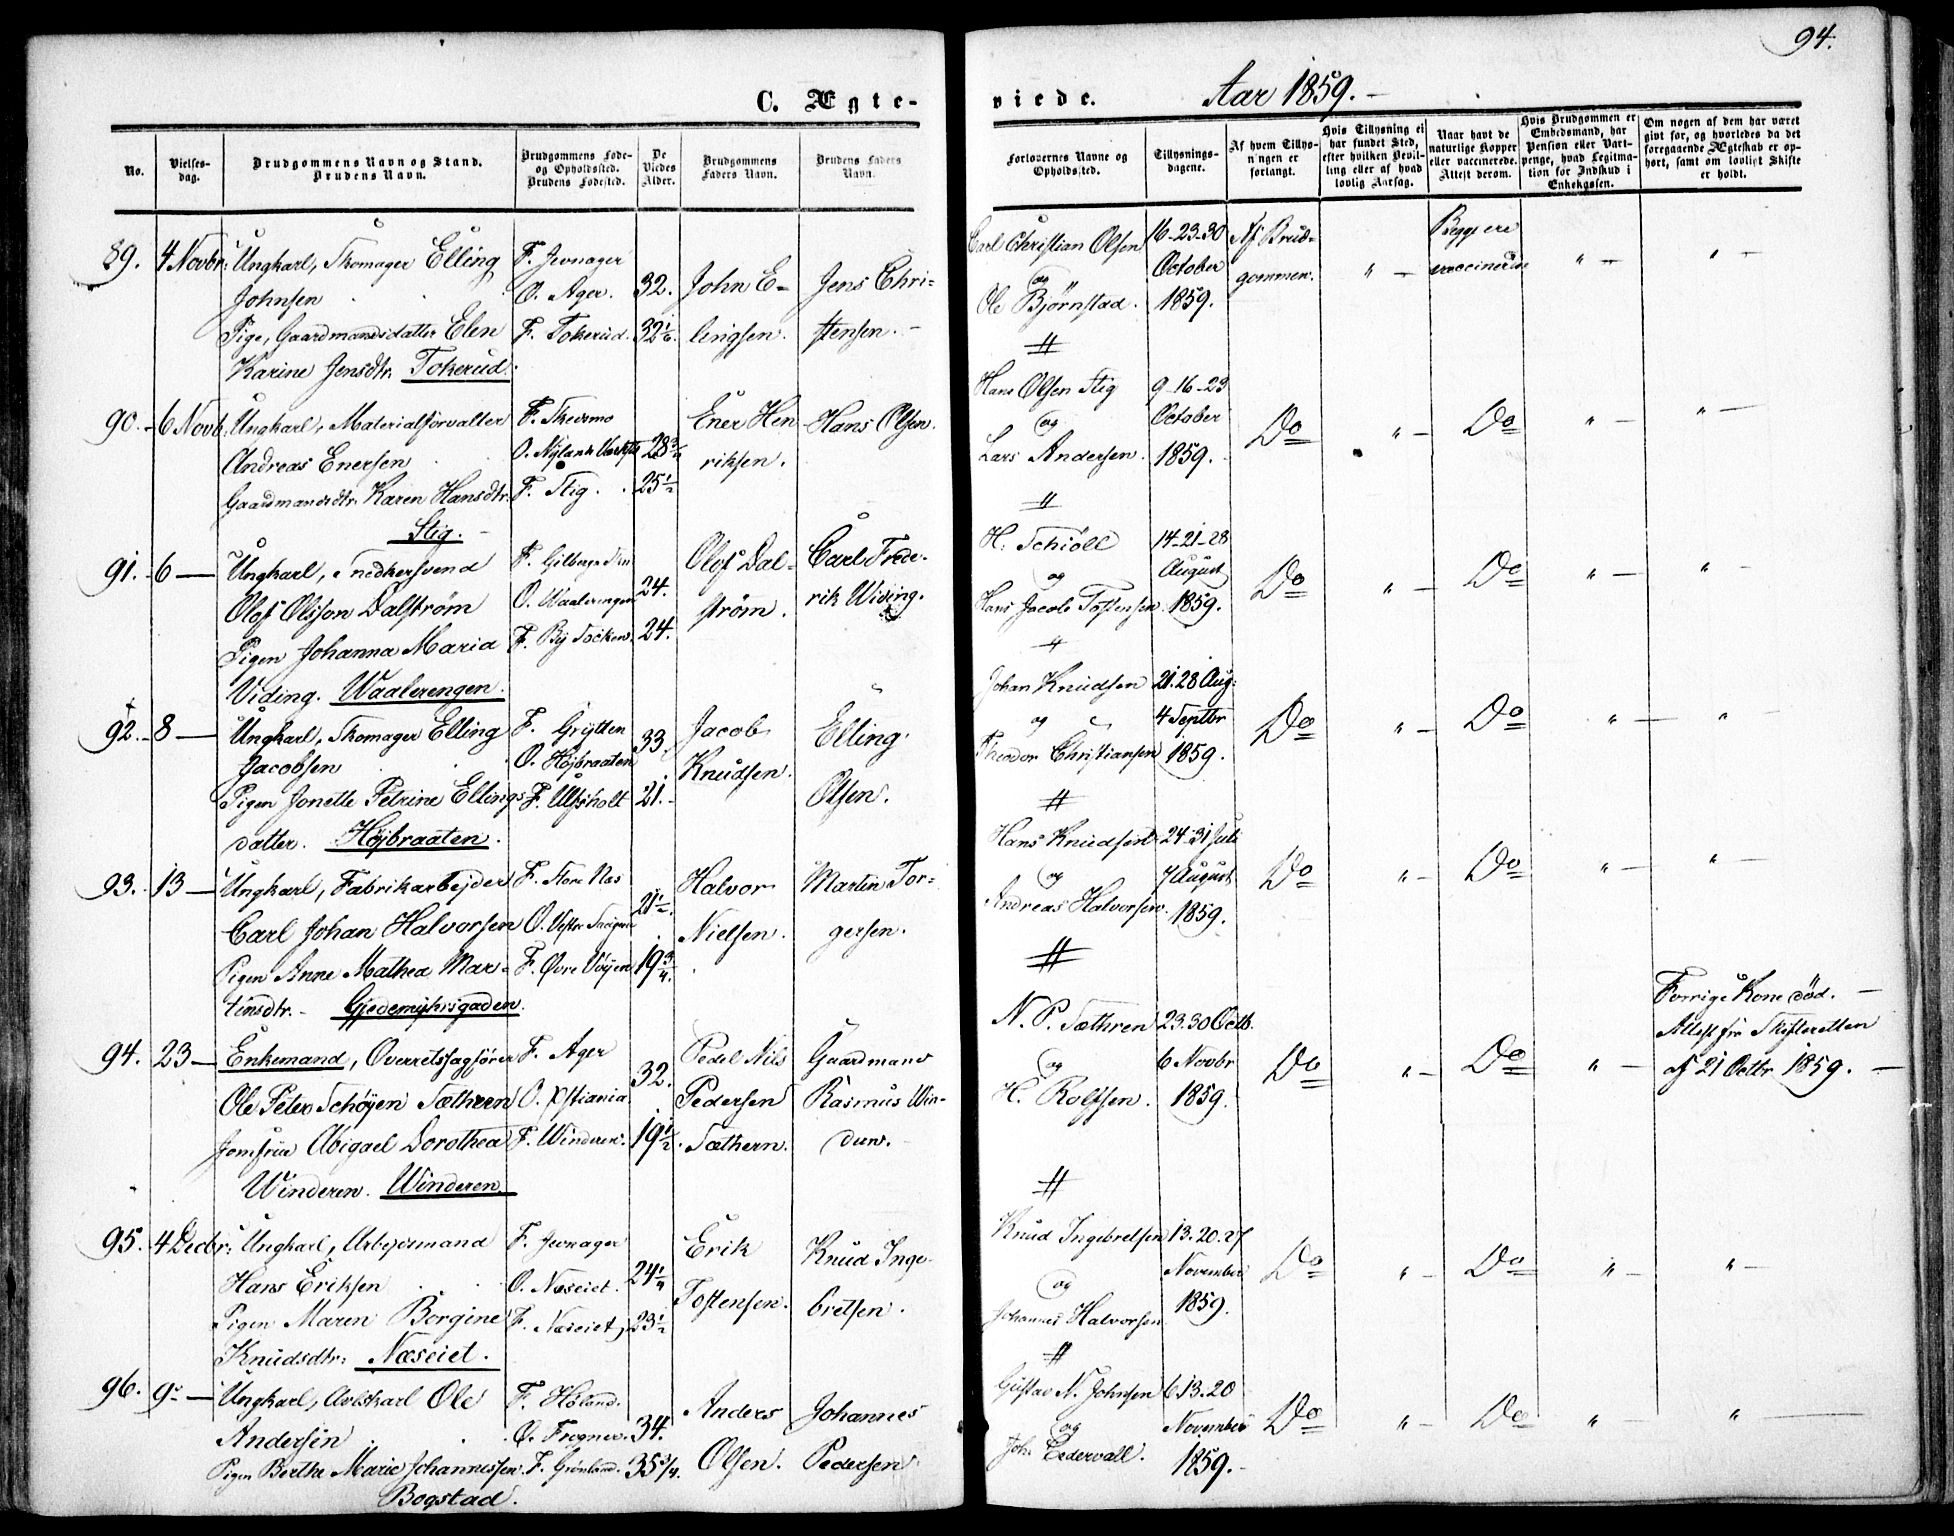 94.
C. Ægte-
viede.
Aar 1859.
No.
Vielses-
dag.
Brudgommens Navn og Stand.
Brudens Navn.
Brudgommens Føde-
og Opholdssted.
Brudens Fødested.
De
Viedes
Alder.
Brudgommens
Faders Navn.
Brudens Faders
Navn.
Forlovernes Navne og
Opholdssted.
Tillysnings-
dagene.
Af hvem Tillys-
ningen er
forlangt.
Hvis Tillysning ei
har fundet Sted,
efter hvilken Bevil-
ling eller af hvad
lovlig Aarsag.
Naar havt de
naturlige Kopper
eller vaccinerede.
Attest derom.
Hvis Brudgommen er
Embedsmand, har
Pension eller Vart-
penge, hvad Legitima-
tion for Indskud i
Enkekassen.
Om nogen af dem har været
givt før, og hvorledes da det
foregaaende Ægteskab er op-
hørt, samt om lovligt Skifte
er holdt.
89. 4 Novbr: Ungkarl, Skomager Elling
Johnsen
Pige, Gaardmandsdatter Elen
Karine Jensdtr. Tokerud.
F. Jevnager
O. Ager.
F. Tokerud.
32.
32 1/6.
John E-
lingsen.
Jens Chri-
stensen.
Carl Christian Olsen
og
Ole Bjørnstad.
16-23-30
October
1859.
Af Brud-
gommen.
" -
Begge ere
vaccinerede
" -
" -
90. 6 Novb. Ungkarl, Materialforvalter
Andreas Enersen
Gaardmandsdtr. Karen Hansdtr.
Stig.
F. Skedsmo
O. Nylands Værksted
F. Stig.
28 3/4
25 1/2
Ener Hen
riksen.
Hans Olsen.
Hans Olsen Stig
og
Lars Andersen.
9-16-23
October
1859.
Do
" -
Do
" -
" -
91. 6 Ungkarl, Snedkersvend
Olof Olsson Dalstrøm
Pigen Johanna Maria
Viding. Waalerengen.
O. Waalerengen
F. By Socken.
24.
24.
Olof Dal-
strøm.
Carl Frede-
rik Widing.
H. Schiöll
og
Hans Jacob Tostensen.
14-21-28
August
1859.
Do
" -
Do
" -
" -
92. 8 Ungkarl, Skomager Elling
Jacobsen
Pigen Jonette Petrine Ellings
datter. Højbraaten.
F. Grytten
O. Højbraaten
F. Ulfsholt
33
21.
Jacob
Knudsen.
Elling
Olsen.
Johan Knudsen
og
Theodor Christiansen
21. 28 Aug:
4 Septbr
1859.
Do
" -
Do
" -
" -
93. 13 Ungkarl, Fabrikarbejder
Carl Johan Halvorsen
Pigen Anne Mathea Mar-
tinsdtr. Gjedemyhrsgaden.
F. Store Næs
F. Øvre Vøyen
21 1/2.
19 3/4.
Halvor
Nielsen.
Martin Tor-
gersen.
Hans Knudsen
og
Andreas Halvorsen.
24-31 Juli
7 August
1859.
Do
" -
Do
" -
" -
94. 23 Enkemand, Overretssagfører
Ole Peter Schøyen Sæthren
Jomfrue Abigael Dorothea
Winderen. Winderen.
F. Ager
O. Xstiania
F. Winderen.
32.
19 1/2.
Pedel Nils
Pedersen
Sæthern.
Gaardmand
Rasmus Win-
deren.
N. P. Sæthren
og
H. Rolfsen.
23. 30 Octb.
6 Novbr
1859.
Do
" -
Do
" -
Forrige Kone død.
Attest fra Skifteretten
af 21 Octbr 1859.
95. 4 Decbr: Ungkarl, Arbejdsmand
Hans Eriksen
Pigen Maren Borgine
Knudsdtr: Næseiet.
F. Jevnager
O. Næseiet.
F. Næseiet,
24 1/4
23 1/2
Erik
Tostensen.
Knud Inge-
bretsen.
Knud Ingebretsen
og
Johannes Halvorsen
13. 20. 27
November
1859.
Do
" -
Do
" -
" -
96. 9 Ungkarl, Avlskarl Ole
Andersen
Pigen Berthe Marie Johannessen.
Bogstad.
F. Høland.
O. Frogner.
F. Grønland.
34.
35 3/4.
Anders
Olsen.
Johannes
Pedersen
Gustav N. Johnsen
og
Joh. Cedervall.
6. 13. 20
November
1859.
Do
" -
Do
"
"